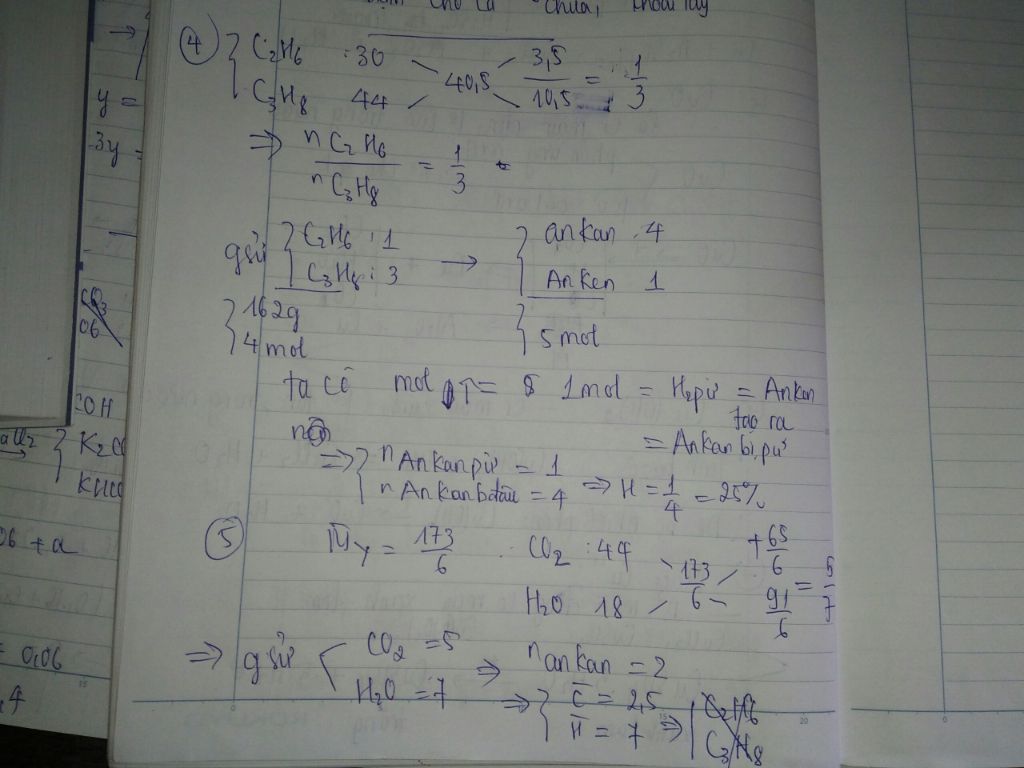 chua, khoai tây
④ { C2H6 : 30 3,5
40,5 — = 1/3
C3H8 44 10,5
⇒ nC2H6 / nC3H8 = 1/3
gsử { C2H6 : 1 → { ankan : 4
C3H8 : 3 Anken 1
{ 162g { 5 mol
4 mol
ta có mol ↑ = 1 mol = H2pứ = Anken
tạo ra
= Ankan bị pứ
⇒ { nAnkanpứ = 1
nAnkanbđầu = 4 ⇒ H = 1/4 = 25%
⑤ M̄Y = 173/6 CO2 : 44 65/6
173/6 = 5/7
H2O 18 91/6
⇒ gsử CO2 = 5 ⇒ nankan = 2
H2O = 7 ⇒ { C̄ = 2,5 ⇒ C2H6
H̄ = 7 C3H8
→
y =
-3y =
CO3
06
COH
K2C
KHCO
06 + a
= 0,06
,4